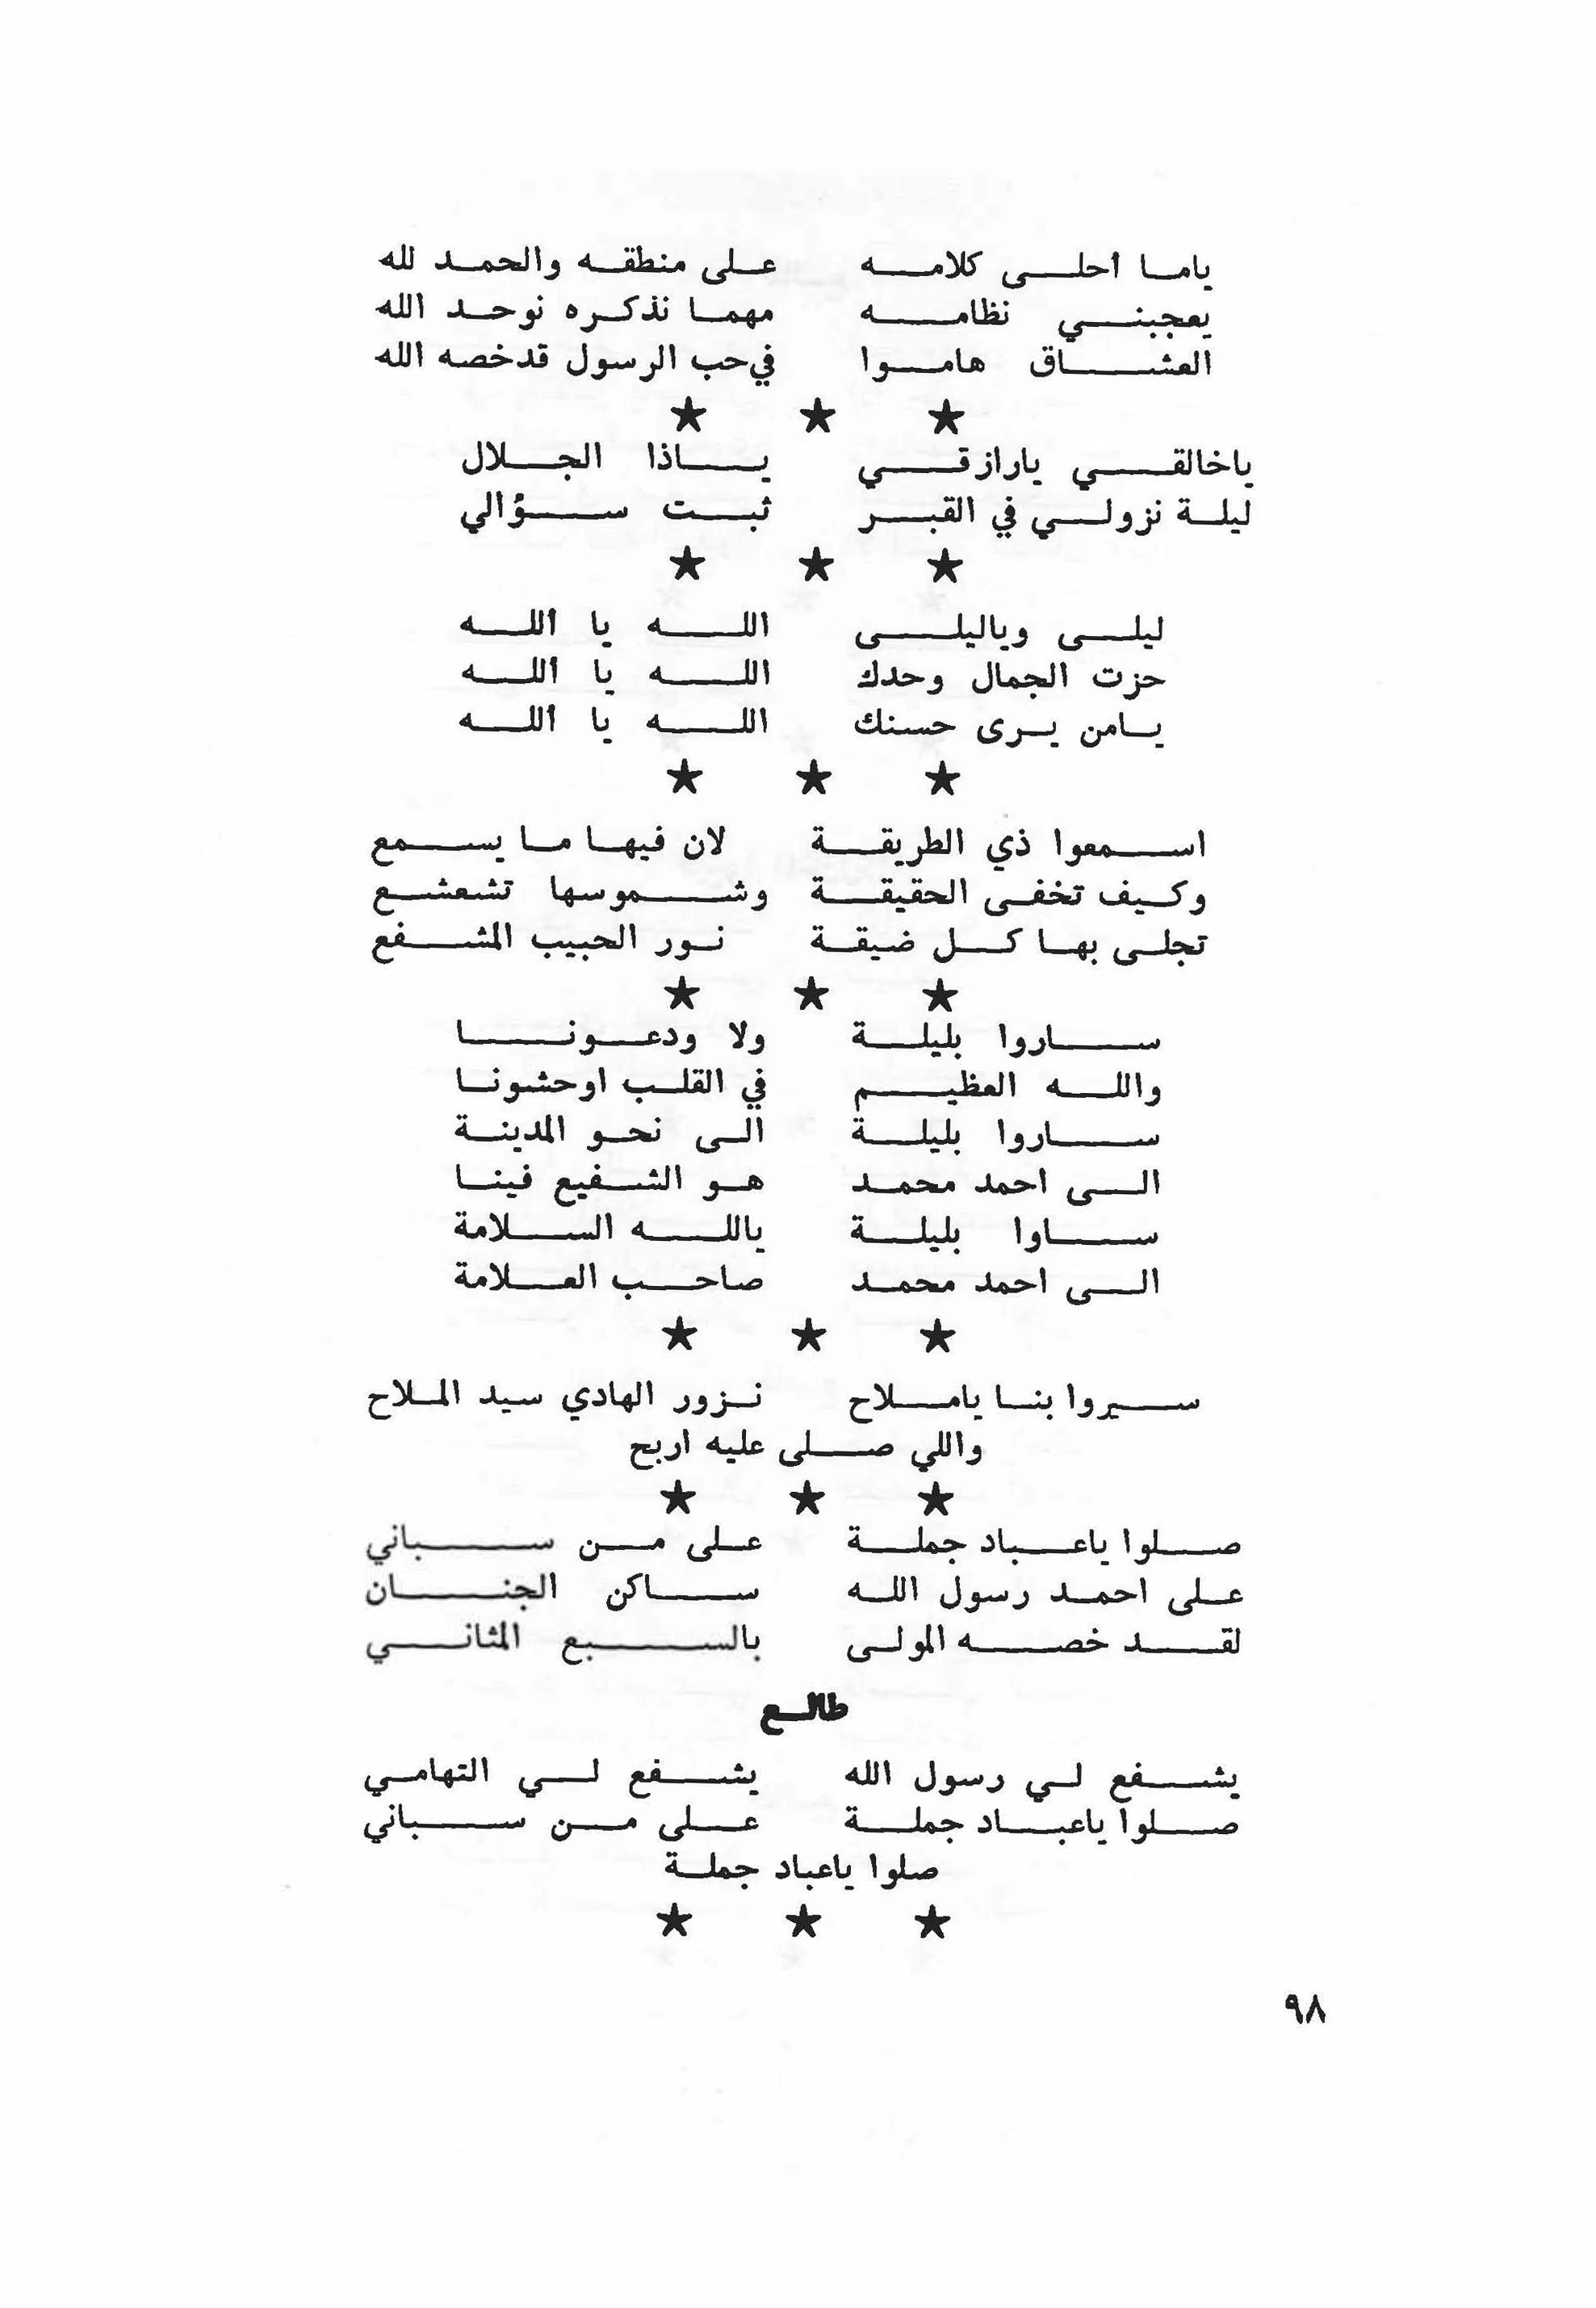 ياما أحلى كلامه على منطقه والحمد لله
يعجبني نظامه مهما نذكره نوحد الله
العشاق هاموا في حب الرسول قد خصه الله
★ ★ ★
ياخالقي يارازقي ياذا الجلال
ليلة نزولي في القبر ثبت سؤالي
★ ★ ★
ليلى وياليلى الله يا ألله
حزت الجمال وحدك الله يا ألله
يامن يرى حسنك الله يا ألله
★ ★ ★
اسمعوا ذي الطريقة لان فيها ما يسمع
وكيف تخفى الحقيقة وشموسها تشعشع
تجلى بها كل ضيقة نور الحبيب المشفع
★ ★ ★
ساروا بليلة ولا ودعونا
والله العظيم في القلب اوحشونا
ساروا بليلة الى نحو المدينة
الى احمد محمد هو الشفيع فينا
ساوا بليلة يالله السلامة
الى احمد محمد صاحب العلامة
★ ★ ★
سيروا بنا ياملاح نزور الهادي سيد الملاح
واللي صلى عليه اربح
★ ★ ★
صلوا ياعباد جملة على من سباني
على احمد رسول الله ساكن الجنان
لقد خصه المولى بالسبع المثاني
طالع
يشفع لي رسول الله يشفع لي التهامي
صلوا ياعباد جملة على من سباني
صلوا ياعباد جملة
★ ★ ★
٩٨